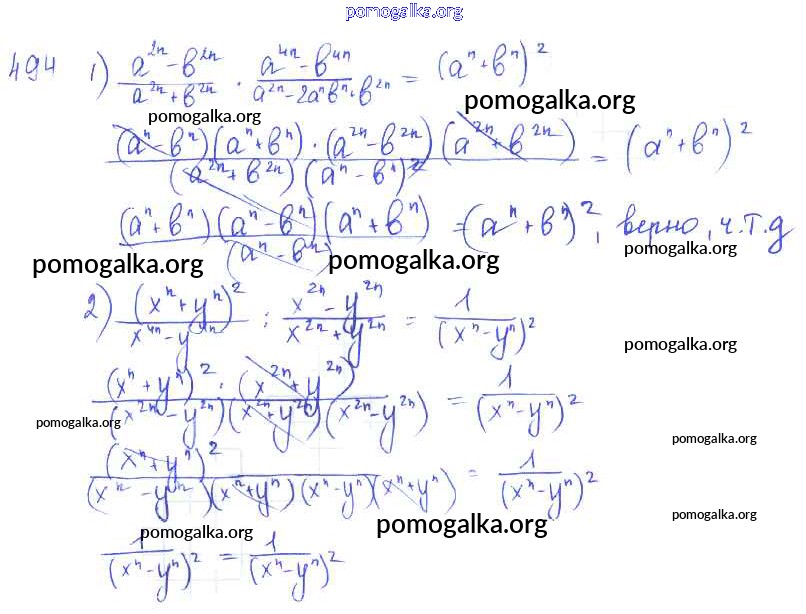 pomogalka.org
494 1) (a^2n - b^2n)/(a^2n + b^2n) · (a^4n - b^4n)/(a^2n - 2a^n b^n + b^2n) = (a^n + b^n)^2
pomogalka.org pomogalka.org
((a^n - b^n)(a^n + b^n) · (a^2n - b^2n)(a^2n + b^2n))/((a^2n + b^2n)(a^n - b^n)^2) = (a^n + b^n)^2
((a^n + b^n)(a^n - b^n)(a^n + b^n))/(a^n - b^n) = (a^n + b^n)^2, верно, ч.т.д
pomogalka.org pomogalka.org pomogalka.org
2) (x^n + y^n)^2/(x^4n - y^4n) : (x^2n - y^2n)/(x^2n + y^2n) = 1/(x^n - y^n)^2
pomogalka.org
((x^n + y^n)^2 · (x^2n + y^2n))/((x^2n - y^2n)(x^2n + y^2n)(x^2n - y^2n)) = 1/(x^n - y^n)^2
pomogalka.org pomogalka.org
(x^n + y^n)^2/((x^n - y^n)(x^n + y^n)(x^n - y^n)(x^n + y^n)) = 1/(x^n - y^n)^2
pomogalka.org pomogalka.org pomogalka.org
1/(x^n - y^n)^2 = 1/(x^n - y^n)^2